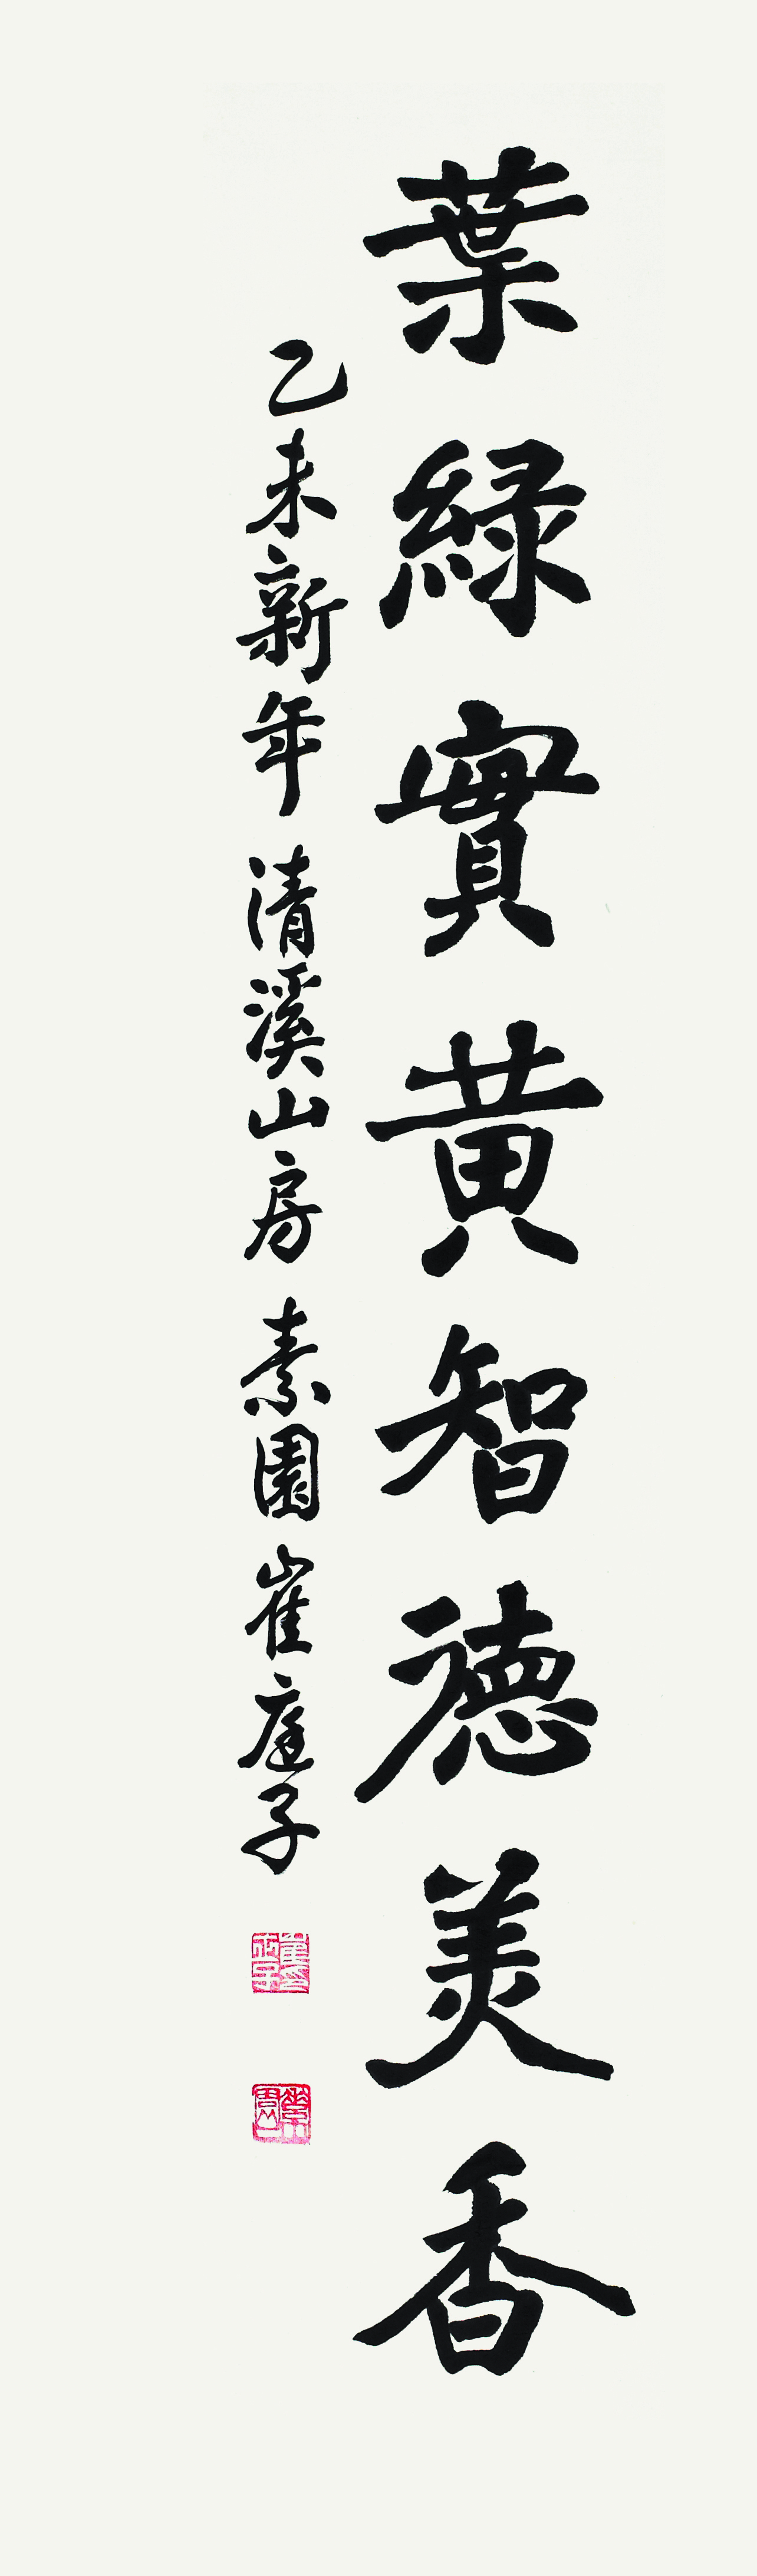 葉綠實黃智德美香
乙未新年 清溪山房 素園 崔庭子